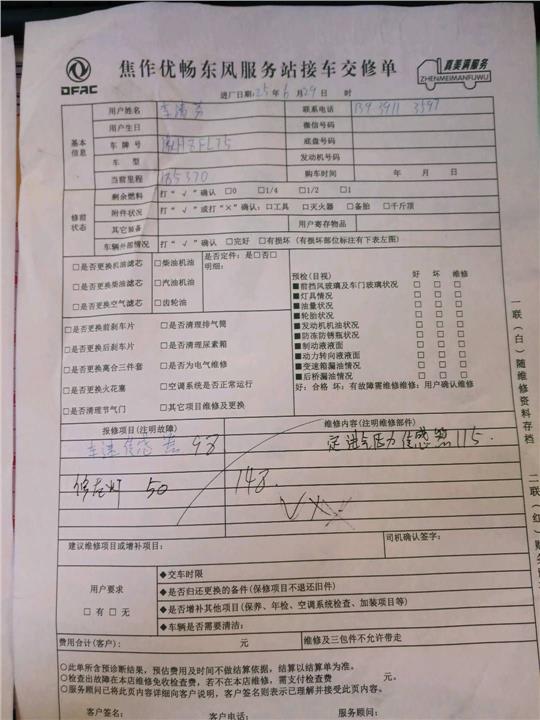 DFAC
焦作优畅东风服务站接车交修单
真美满服务
ZHENMEIMANFUWU
进厂日期：25 年 6 月 29 日 时
基本信息
用户姓名 联系电话 139 3911 3597
用户生日 微信号码
车 牌 号 底盘号码
车 型 发动机号码
当前里程 185370 购车时间 年 月 日
修前状态
剩余燃料 打“√”确认 □0 □1/4 □1/2 □1
附件状况 打“√”或打“×”确认：□工具 □灭火器 □备胎 □千斤顶
其它装备 用户寄存物品
车辆外部情况 打“√”确认 □完好 □有损坏（有损坏部位标注有下表左图）
□是否更换机油滤芯 □柴油机油 是否定件：是□否□
明细：
□是否更换柴油滤芯 □汽油机油
□是否更换空气滤芯 □齿轮油
预检(目视) 好 坏 维修
■前挡风玻璃及车门玻璃状况 □ □ □
■灯具情况 □ □ □
■油量状况 □ □ □
■轮胎状况 □ □ □
■发动机机油状况 □ □ □
■防冻防锈瓶状况 □ □ □
■制动液液面 □ □ □
■动力转向液液面 □ □ □
■变速箱漏油情况 □ □ □
■后桥漏油情况 □ □ □
好：合格 坏：有故障需维修维修：用户确认维修
□是否更换前刹车片 □是否清理排气筒
□是否更换后刹车片 □是否清理尿素箱
□是否更换离合三件套 □是否为电气维修
□是否更换火花塞 □空调系统是否正常运行
□是否清理节气门 □其它项目维修及更换
报修项目(注明故障) 维修内容(注明维修部件)
车速传感器 98 定进气压力传感器 115.
修左灯 50 148.
建议维修项目或增补项目： 司机确认签字：
用户要求
□ 有 □ 无
◆交车时限
◆是否归还更换的备件(保修项目不退还旧件)
◆是否增补其他项目(保养、年检、空调系统检查、加装项目等)
◆车辆是否需要清洁：
费用合计(客户)： 元 维修及三包件不允许带走
○此单所含预诊断结果，预估费用及时间不做结算依据，结算以结算单为准。
○检查出故障在本店维修免收检查费，若不在本店维修，需支付检查费 元。
○服务顾问已将此页内容详细向客户说明，客户签名则表示已理解并接受此页内容。
客户签名： 客户电话： 服务顾问：
一联（白）随维修资料存档
二联（红）